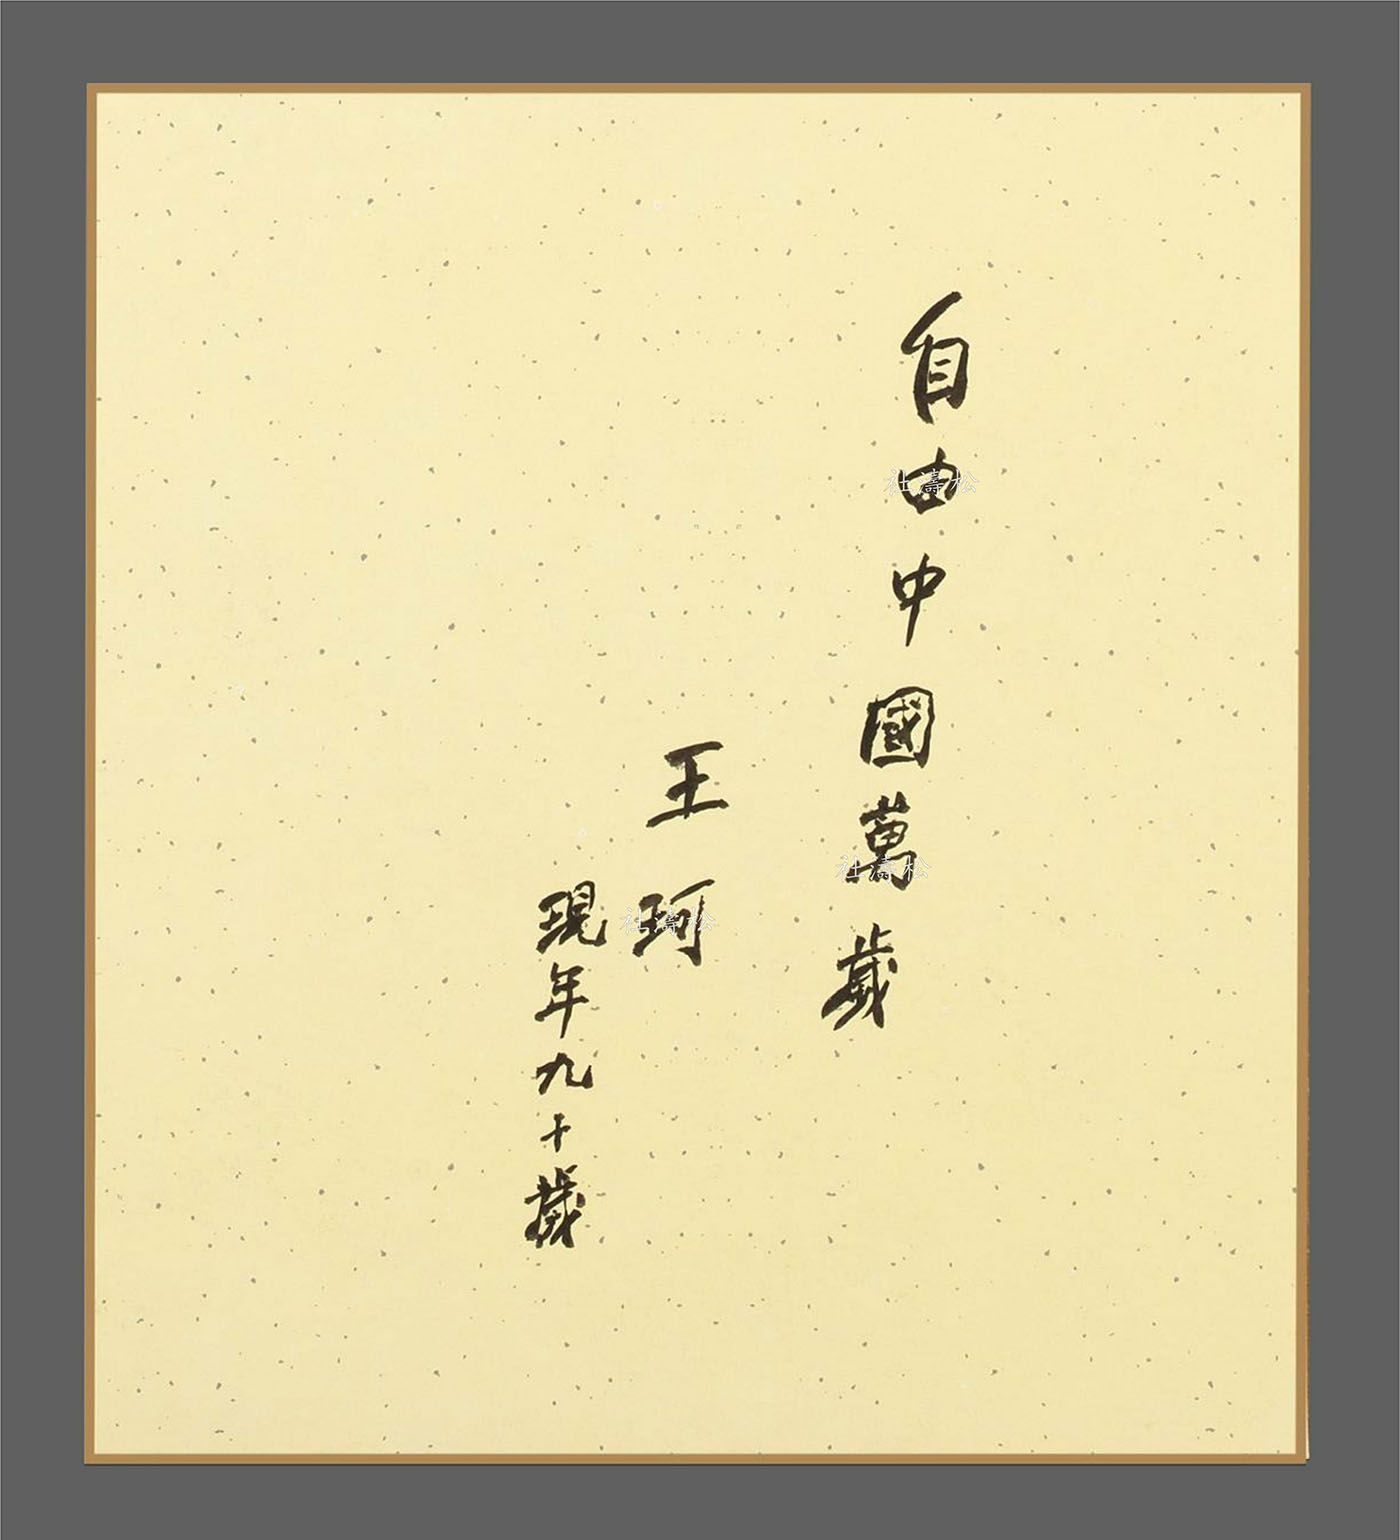 自由中國萬歲
王珂
現年九十歲
松濤社
松濤社
松濤社